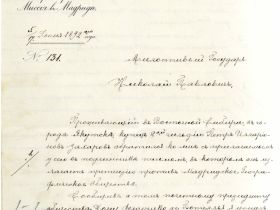 Миссія въ Мадридѣ.
5/17 Іюля 1892 года
№ 131.
Милостивый Государь
Николай Павловичъ,
Проживающій въ Восточной Сибири, въ го-
родѣ Якутскѣ, купецъ 2ой гильдіи Петръ
Захаровъ обратился ко мнѣ съ прилагаемымъ
у сего въ подлинникѣ письмомъ, въ которомъ онъ из-
лагаетъ претензію противъ Мадридскаго Геогра-
фическаго общества.
Сообщивъ о томъ почетному предсѣдателю
общества